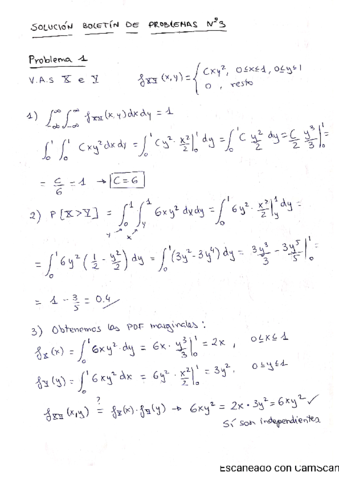 SOLUCIÓN BOLETÍN DE PROBLEMAS Nº3
Problema 1
V.A.S X e Y    f_XY(x,y) = { Cxy², 0≤x≤1, 0≤y≤1
0, resto
1) ∫_-∞^∞ ∫_-∞^∞ f_XY(x,y) dx dy = 1
∫_0^1 ∫_0^1 Cxy² dx dy = ∫_0^1 Cy² · x²/2 |_0^1 dy = ∫_0^1 C y²/2 dy = C/2 y³/3 |_0^1 =
= C/6 = 1 → C = 6
2) P[X>Y] = ∫_0^1 ∫_y^1 6xy² dx dy = ∫_0^1 6y² · x²/2 |_y^1 dy =
y x y
= ∫_0^1 6y² (1/2 - y²/2) dy = ∫_0^1 (3y² - 3y⁴) dy = 3y³/3 - 3y⁵/5 |_0^1 =
= 1 - 3/5 = 0.4
3) Obtenemos las PDF marginales:
f_X(x) = ∫_0^1 6xy² · dy = 6x · y³/3 |_0^1 = 2x, 0≤x≤1
f_Y(y) = ∫_0^1 6xy² dx = 6y² · x²/2 |_0^1 = 3y², 0≤y≤1
f_XY(x,y) =? f_X(x) · f_Y(y) → 6xy² = 2x · 3y² = 6xy² ✓
Sí son independientes
Escaneado con CamScan